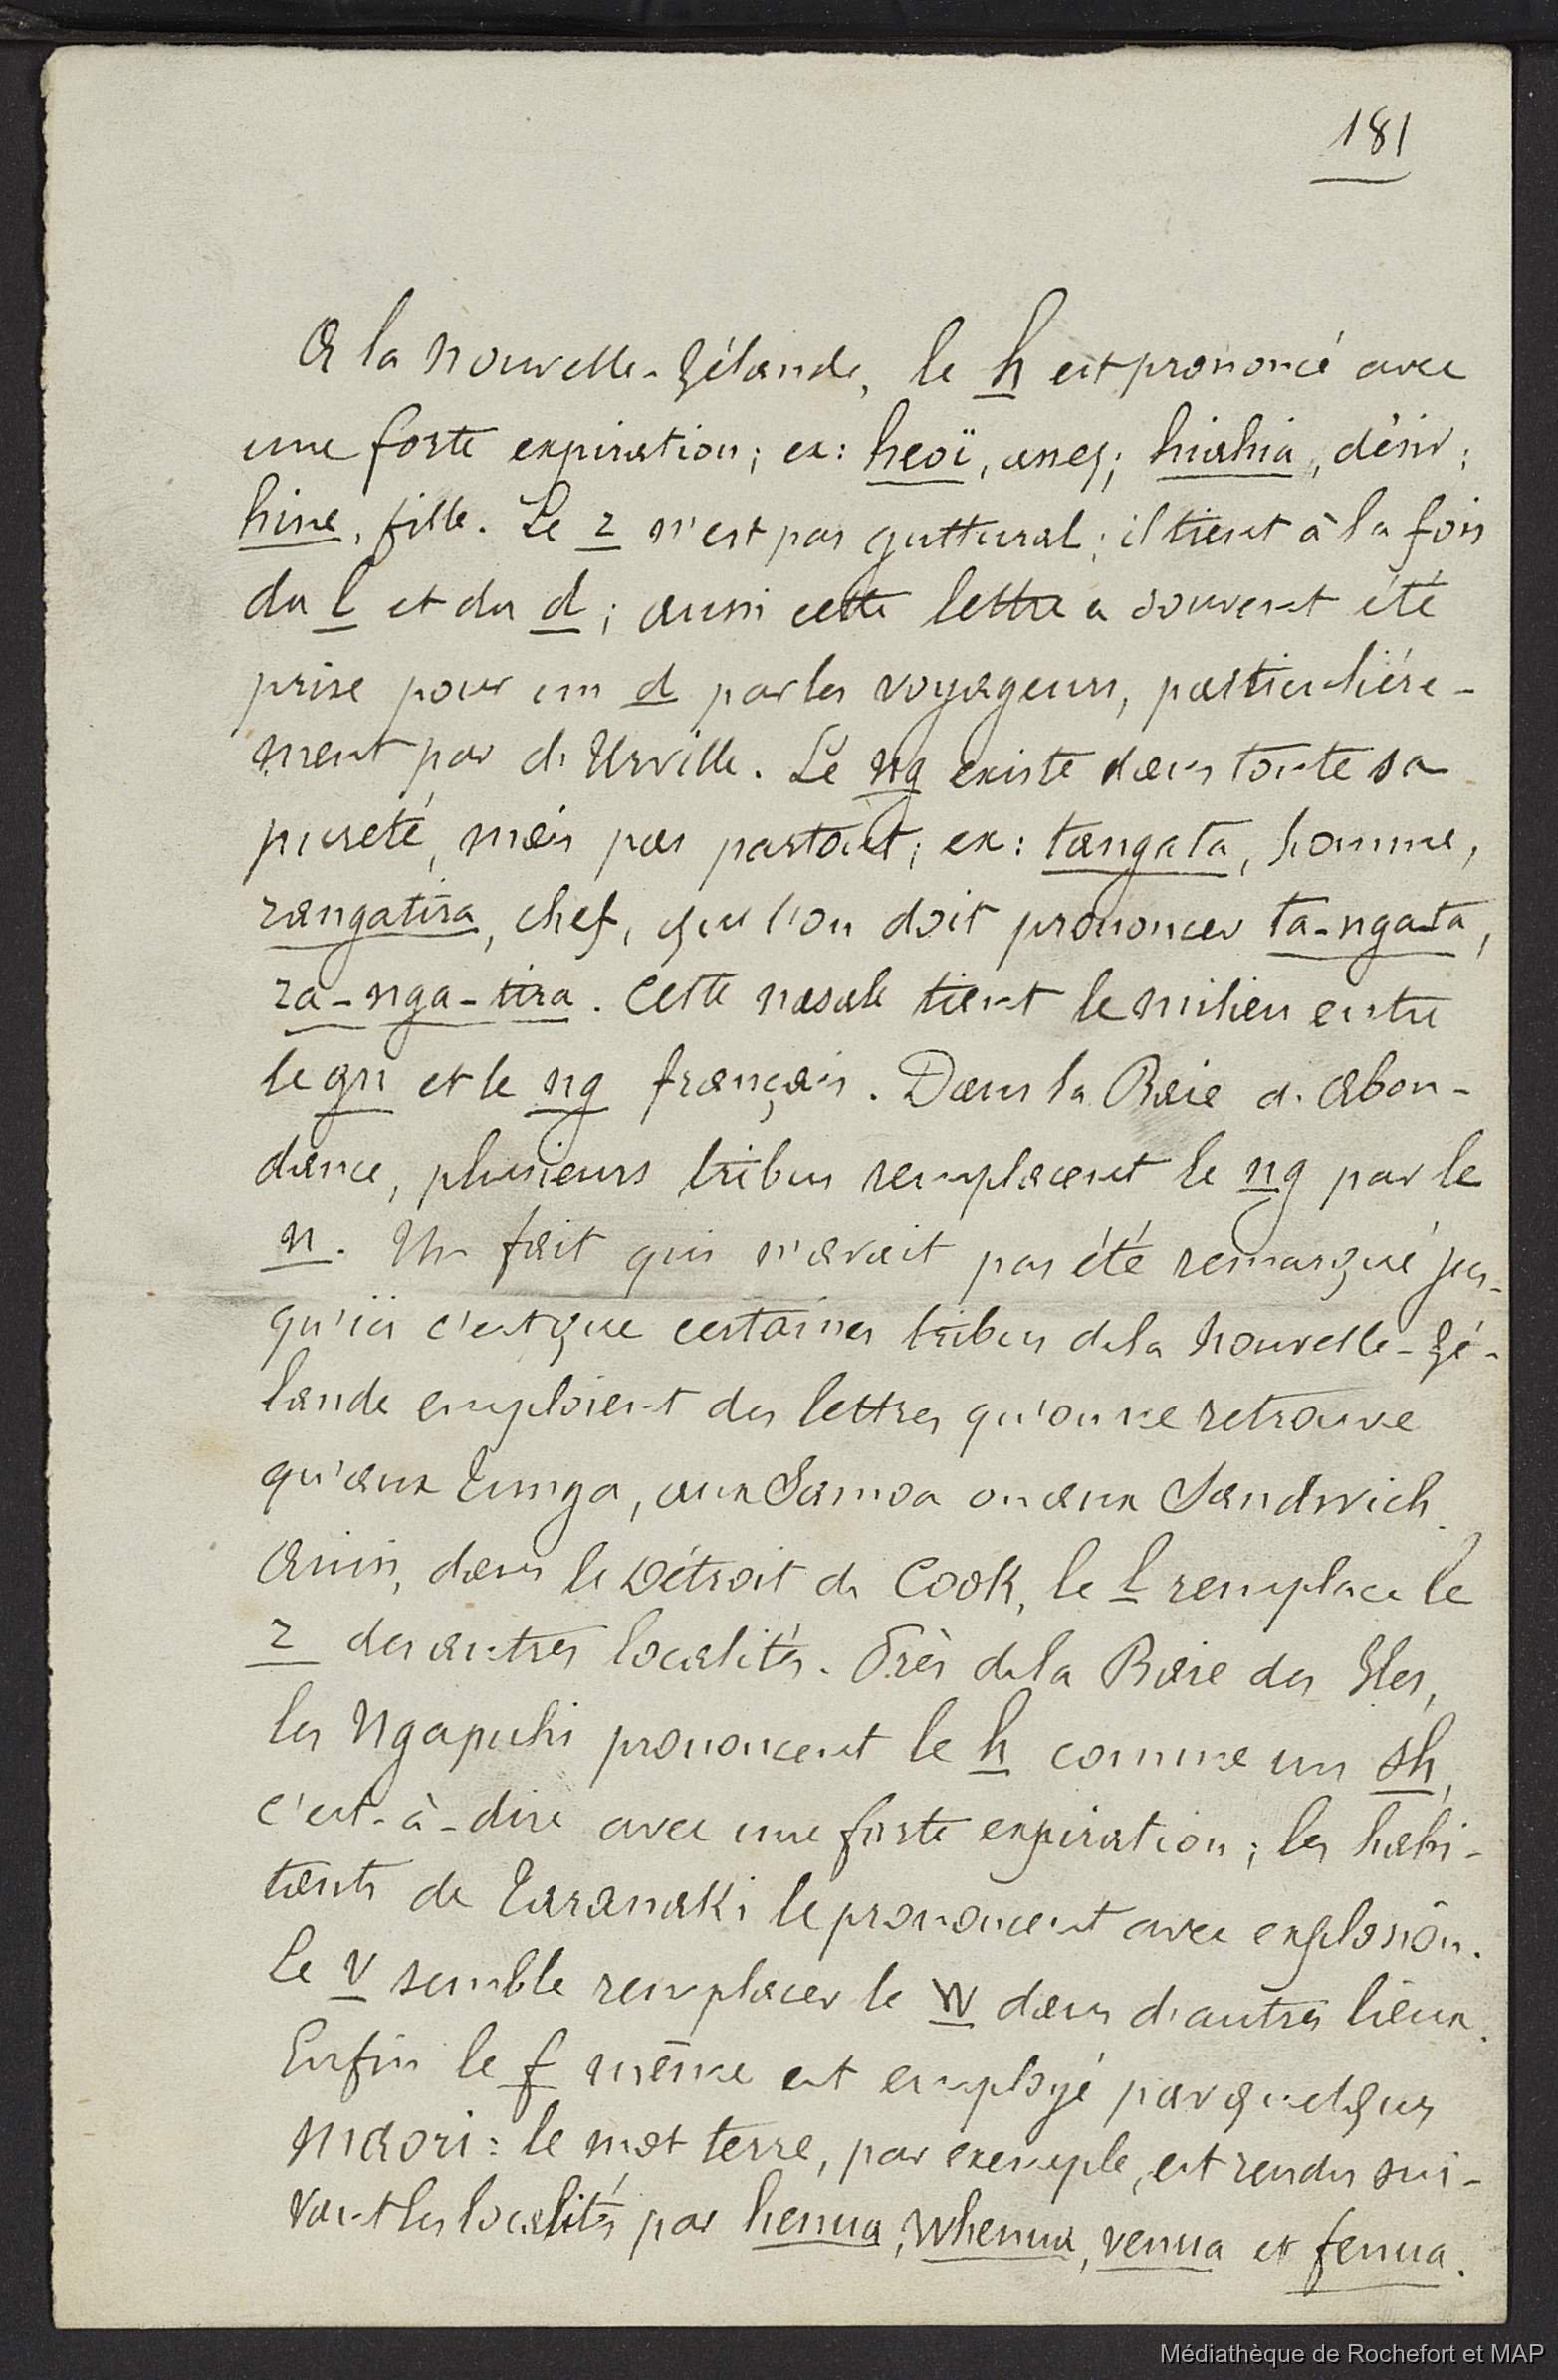 181
A la Nouvelle-Zélande, le h est prononcé avec
une forte expiration; ex: heoï, assez; hiahia, désir;
hine, fille. Le r n'est pas guttural; il tient à la fois
du l et du d; aussi cette lettre a souvent été
prise pour un d par les voyageurs, particulière-
ment par d'Urville. Le ng existe dans toute sa
pureté, mais pas partout; ex: tangata, homme,
rangatira, chef, que l'on doit prononcer ta-nga-ta,
ra-nga-tira. Cette nasale tient le milieu entre
le gn et le ng français. Dans la Baie d'Abon-
dance, plusieurs tribus remplacent le ng par le
n. Un fait qui n'avait pas été remarqué jus-
qu'ici c'est que certaines tribus de la Nouvelle-Zé-
lande emploient des lettres qu'on ne retrouve
qu'aux Tunga, aux Samoa ou aux Sandwich.
Ainsi, dans le Détroit de Cook, le l remplace le
r des autres localités. Près de la Baie des Iles,
les Ngapuhi prononcent le h comme un sh,
c'est-à-dire avec une forte expiration; les habi-
tants de Taranaki le prononcent avec explosion.
Le v semble remplacer le w dans d'autres lieux.
Enfin le f même est employé par quelques
Maori: le mot terre, par exemple, est rendu sui-
vant les localités par henua, whenua, venua et fenua.
Médiathèque de Rochefort et MAP